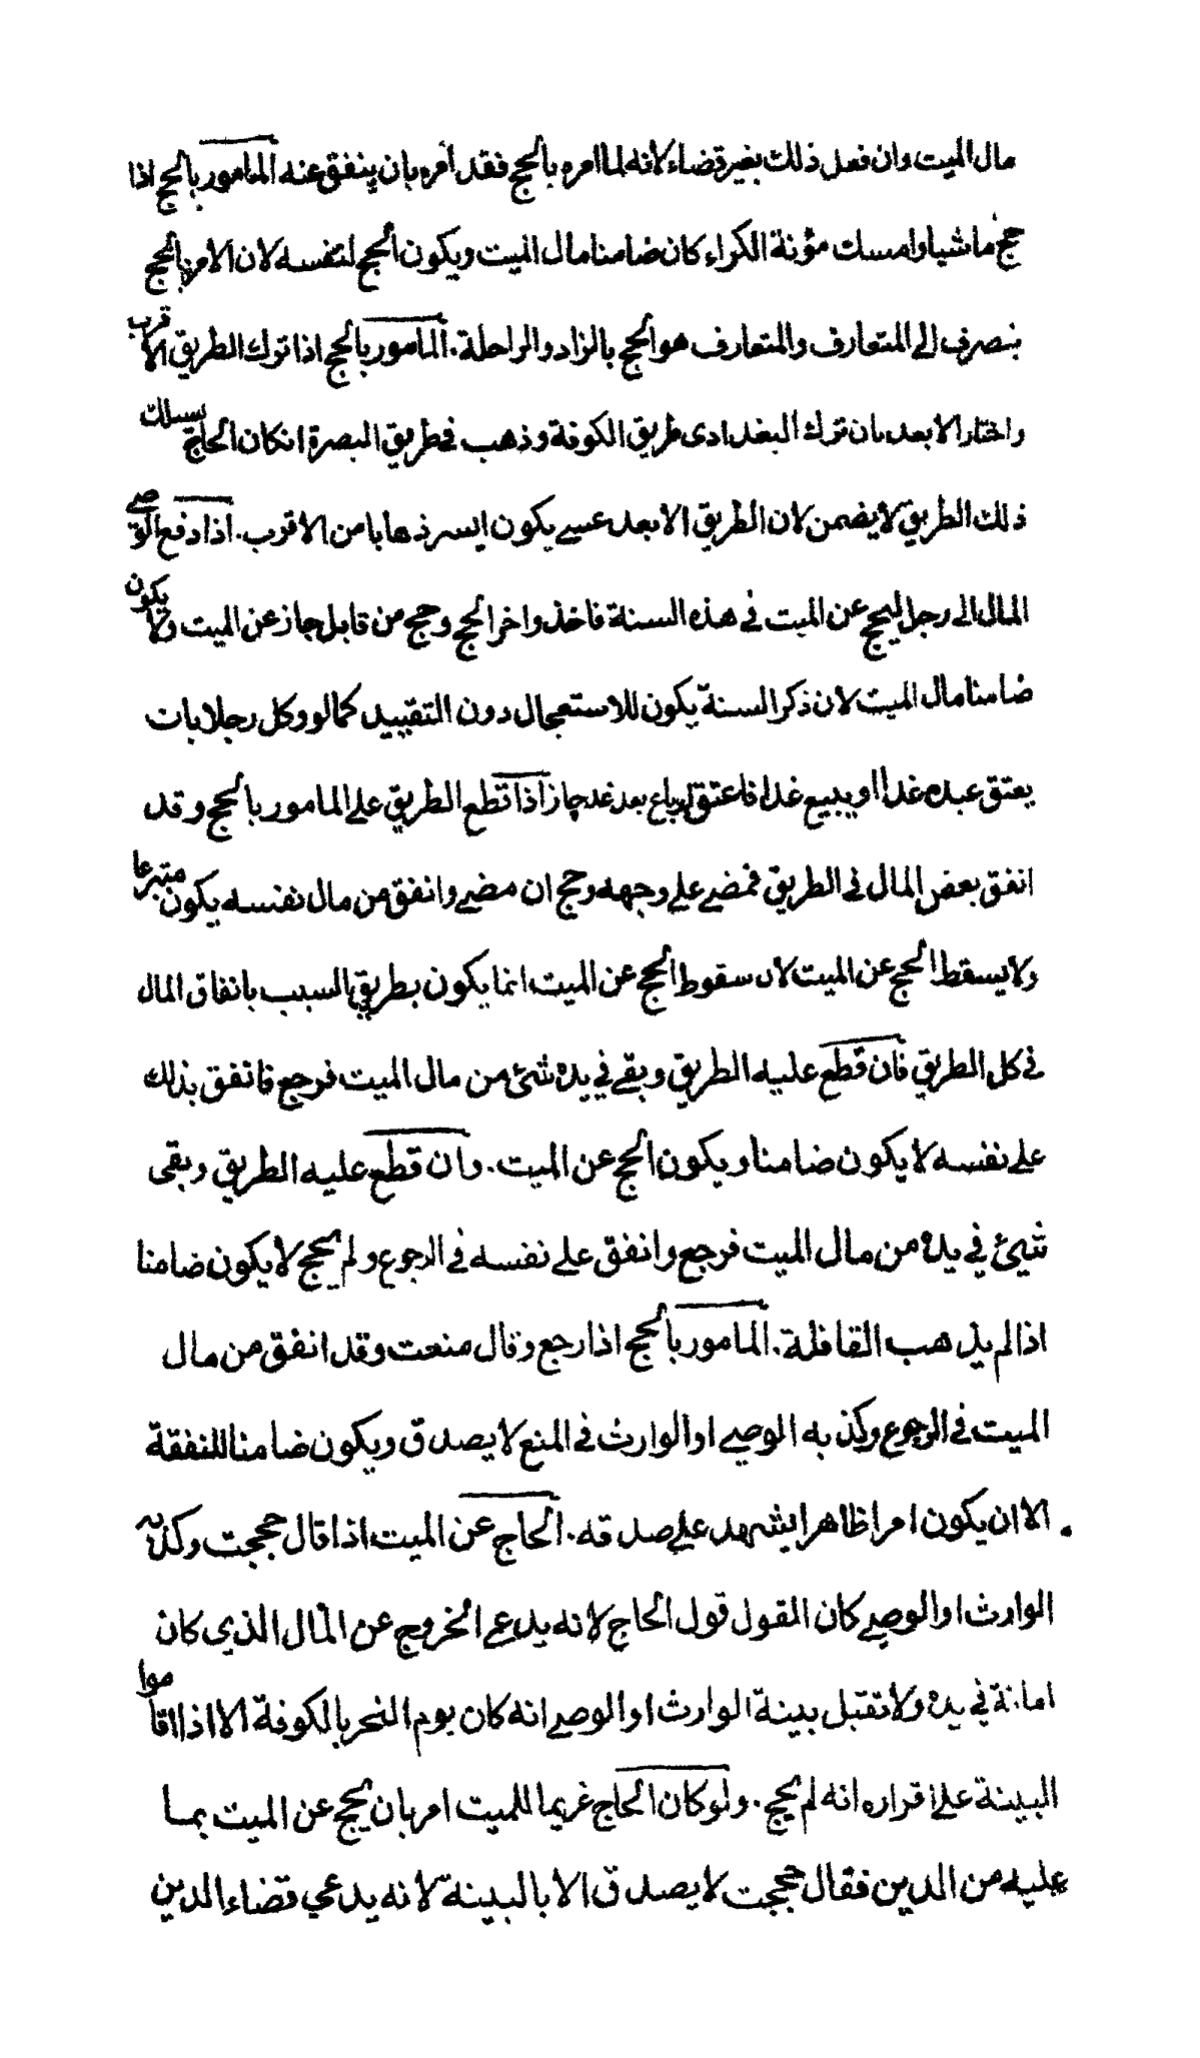 مال الميت وان فعل ذلك بغير قضاء لانه لما امره بالحج فقد أمره بان ينفق عنه المامور بالحج اذا
حج ماشيا وامسك مؤنة الكراء كان ضامنا مال الميت ويكون الحج لنفسه لان الامر بالحج
ينصرف الى المتعارف والمتعارف هو الحج بالزاد والراحلة. المامور بالحج اذا ترك الطريق الاقرب
واختار الابعد بان ترك البغدادى طريق الكوفة وذهب في طريق البصرة ان كان الحاج يسلك
ذلك الطريق لا يضمن لان الطريق الابعد عسى يكون ايسر ذهابا من الاقرب. اذا دفع الوصي
المال الى رجل ليحج عن الميت في هذه السنة فاخذ واخر الحج وحج من قابل جاز عن الميت ولا يكون
ضامنا مال الميت لان ذكر السنة يكون للاستعجال دون التقييد كما لو وكل رجلا بان
يعتق عبده غدا او يبيع غدا فاعتق او باع بعد غد جاز اذا قطع الطريق على المامور بالحج وقد
انفق بعض المال في الطريق فمضى على وجهه وحج ان مضى وانفق من مال نفسه يكون متبرعا
ولا يسقط الحج عن الميت لان سقوط الحج عن الميت انما يكون بطريق السبب بانفاق المال
في كل الطريق فان قطع عليه الطريق وبقي في يده شئ من مال الميت فرجع فانفق بذلك
على نفسه لا يكون ضامنا ويكون الحج عن الميت. وان قطع عليه الطريق وبقى
شئ في يده من مال الميت فرجع وانفق على نفسه في الرجوع ولم يحج لا يكون ضامنا
اذا لم يذهب القافلة. المامور بالحج اذا رجع وقال منعت وقد انفق من مال
الميت في الرجوع وكذبه الوصي او الوارث في المنع لا يصدق ويكون ضامنا للنفقة
الا ان يكون امرا ظاهرا يشهد على صدقه. الحاج عن الميت اذا قال حججت وكذبه
الوارث او الوصي كان القول قول الحاج لانه يدعى الخروج عن المال الذي كان
امانة في يده ولا تقبل بينة الوارث او الوصي انه كان يوم النحر بالكوفة الا اذا اقاموا
البينة على اقراره انه لم يحج. ولو كان الحاج غريما للميت امر بان يحج عن الميت بما
عليه من الدين فقال حججت لا يصدق الا بالبينة لانه يدعي قضاء الدين